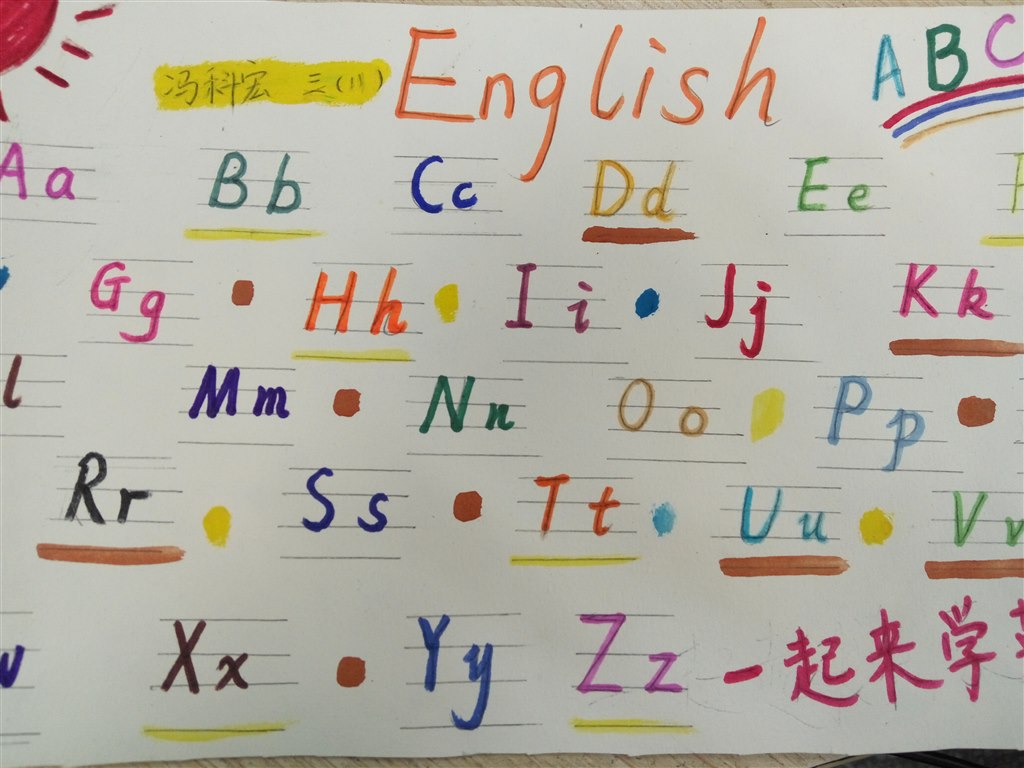 冯科宏 三(11) English ABC
Aa Bb Cc Dd Ee F
Gg Hh Ii Jj Kk
l Mm Nn Oo Pp
Rr Ss Tt Uu Vv
w Xx Yy Zz 一起来学英